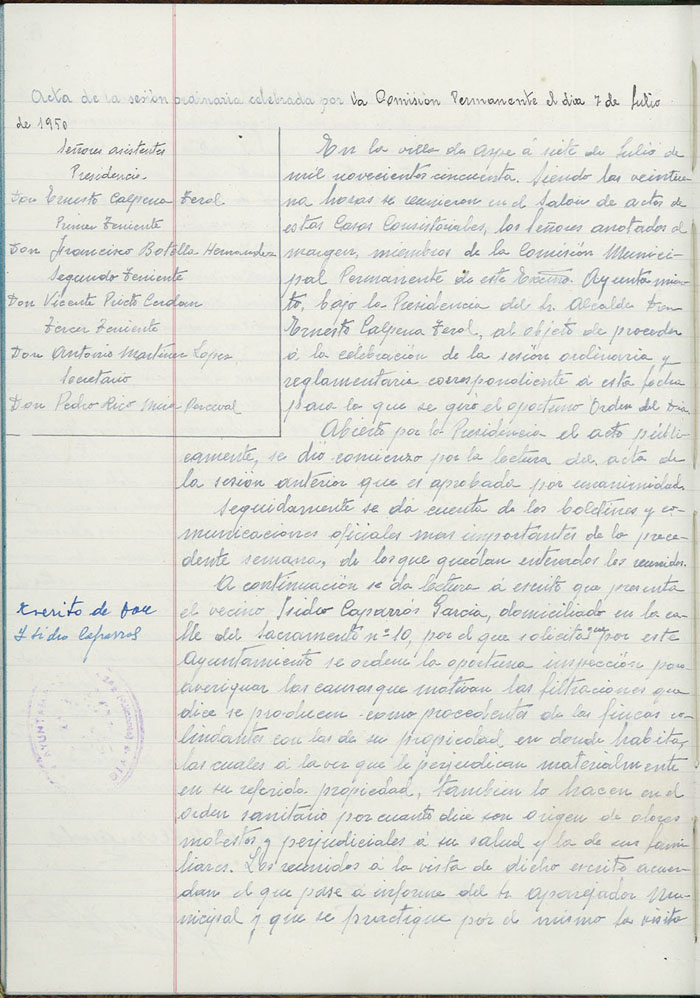 Acta de la sesión ordinaria celebrada por la Comisión Permanente el dia 7 de Julio
de 1950
Señores asistentes
Presidencia
Don Ernesto Calpena Ferol
Primer Teniente
Don Francisco Botella Hernandez
Segundo Teniente
Don Vicente Prieto Cerdan
Tercer Teniente
Don Antonio Martinez Lopez
Secretario
Don Pedro Rico Mira Perceval
En la villa de Aspe á siete de Julio de
mil novecientos cincuenta. Siendo las veintiu-
na horas se reunieron en el Salon de actos de
estas Casas Consistoriales, los Señores anotados al
margen, miembros de la Comisión Munici-
pal Permanente de este Excmo. Ayuntamien-
to, bajo la Presidencia del Sr. Alcalde Don
Ernesto Calpena Ferol, al objeto de proceder
á la celebración de la sesión ordinaria y
reglamentaria correspondiente á esta fecha
para la que se giró el oportuno Orden del Dia.
Abierto por la Presidencia el acto públi-
camente, se dió comienzo por la lectura del acta de
la sesión anterior que es aprobada por unanimidad.
Seguidamente se da cuenta de los boletines y co-
municaciones oficiales mas importantes de la prece-
dente semana, de los que quedan enterados los reunidos.
A continuación se da lectura á escrito que presenta
el vecino Isidro Caparrós Garcia, domiciliado en la ca-
lle del Sacramento nº 10, por el que solicita que por este
Ayuntamiento se ordene la oportuna inspección para
averiguar las causas que motivan las filtraciones que
dice se producen como procedentes de las fincas co-
lindantes con las de su propiedad en donde habita,
las cuales á la vez que le perjudican materialmente
en su referida propiedad, tambien lo hacen en el
orden sanitario por cuanto dice son origen de olores
molestos y perjudiciales á su salud y la de sus fami-
liares. Los reunidos á la vista de dicho escrito acuer-
dan el que pase á informe del Sr Aparejador Mu-
nicipal y que se practique por el mismo la visita
Escrito de Don
Isidro Caparros